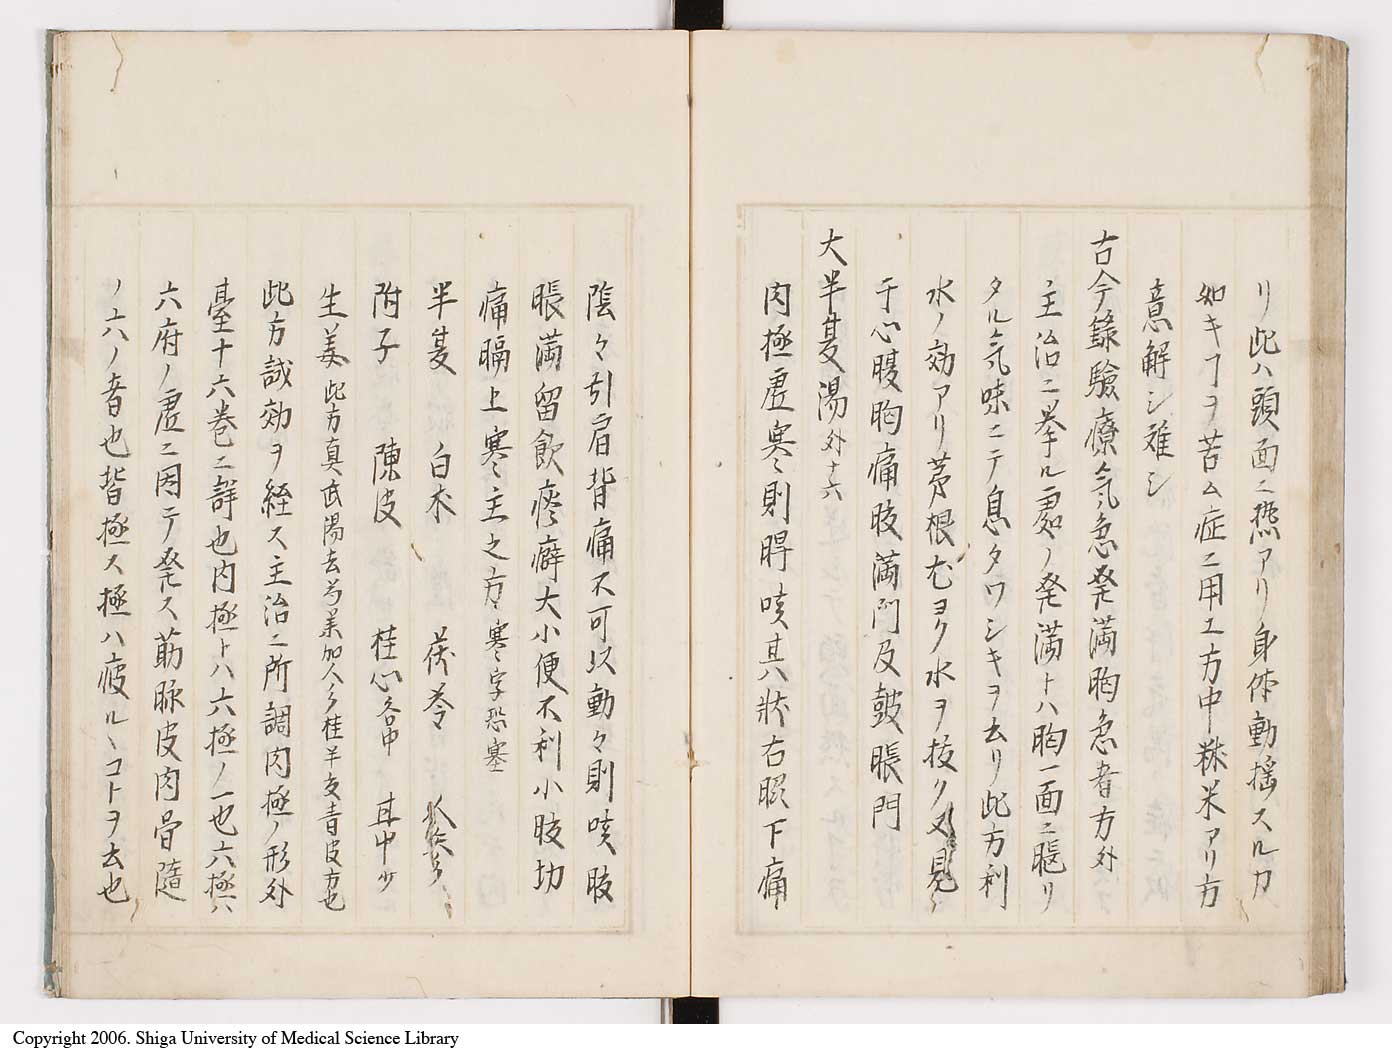 リ此ハ頭面ニ熱アリ身体動揺スルカ
如キヿヲ苦ム症ニ用ユ方中粳米アリ方
意解シ难シ
古今錄驗療気急発満胸急者方外
主治ニ挙ル処ノ発満トハ胸一面ニ脹リ
タル気味ニテ息タワシキヲ云リ此方利
水ノ効アリ茅根尤ヨク水ヲ抜ク又見
于心腹胸痛肢満門及鼓脹門
大半夏湯外十六
肉極虚寒〻則脾咳其状右脇下痛
陰々引肩背痛不可以動々則咳肢
脹満留飲痰癖大小便不利小肢切
痛膈上寒〻主之方〻寒〻字恐塞
半夏 白朮 茯苓 人参
附子 陳皮 桂心各中 甘中少
生姜此方真武湯去芍薬加人参桂半夏青皮方也
此方誠効ヲ経ス主治ニ所調肉極ノ形外
臺十六巻ニ詳也肉極トハ六極ノ一也六極ハ
六府ノ虚ニ因テ発ス筋脉皮肉骨髓
ノ六ノ者也皆極ス極ハ疲ルヽコトヲ云也
Copyright 2006. Shiga University of Medical Science Library